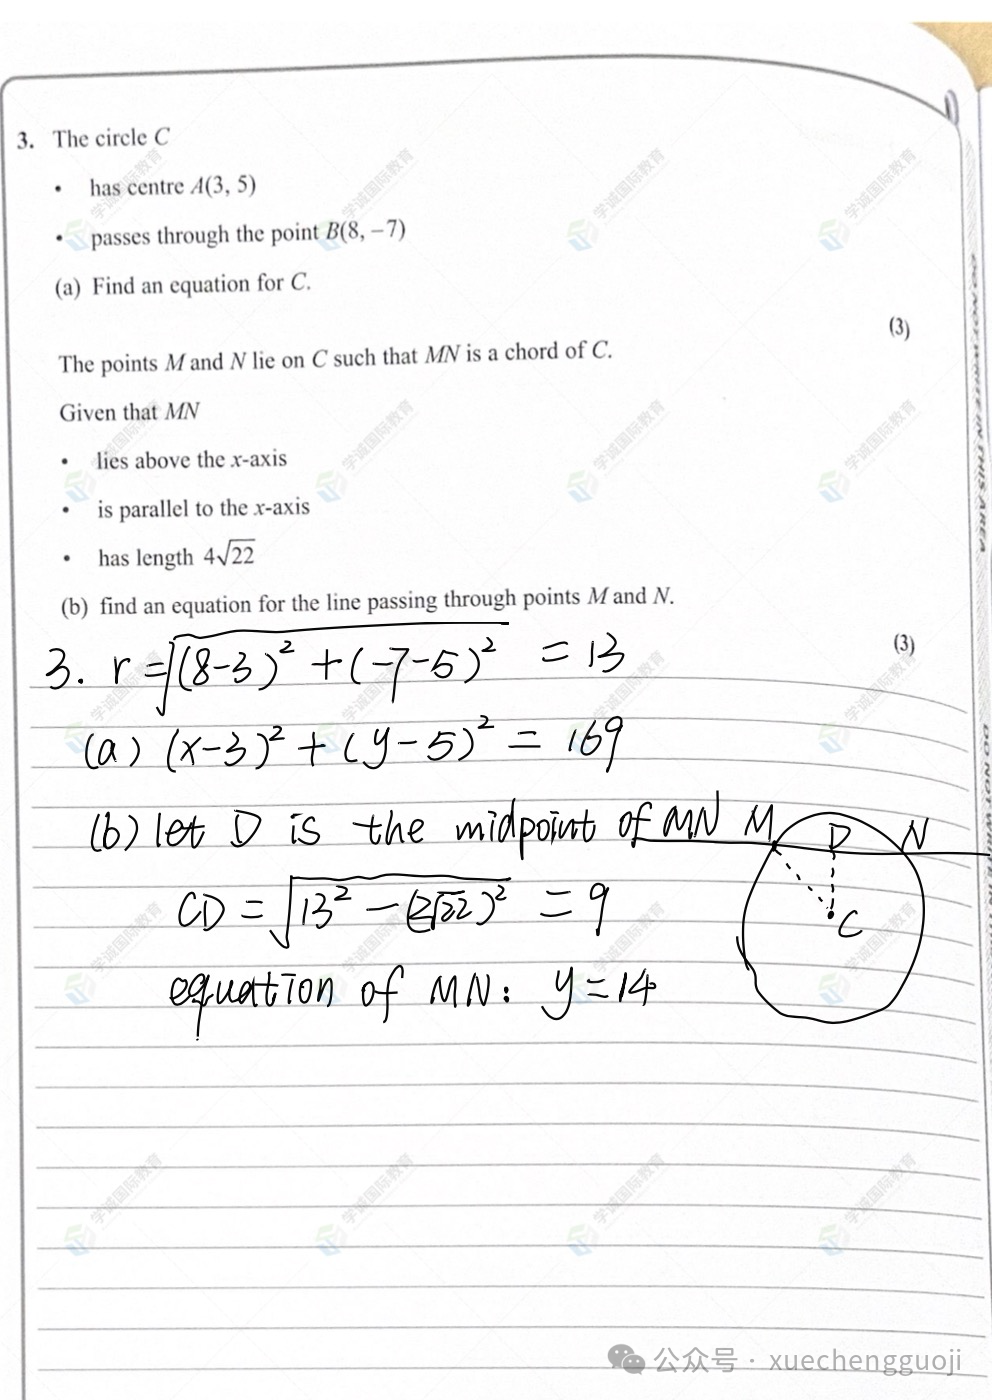 3. The circle C
• has centre A(3, 5)
• passes through the point B(8, −7)
(a) Find an equation for C.
(3)
The points M and N lie on C such that MN is a chord of C.
Given that MN
• lies above the x-axis
• is parallel to the x-axis
• has length 4√22
(b) find an equation for the line passing through points M and N.
(3)
3. r = √(8-3)² + (-7-5)² = 13
(a) (x-3)² + (y-5)² = 169
(b) let D is the midpoint of MN
M D N
CD = √13² - (2√22)² = 9
C
equation of MN: y = 14
学诚国际教育
公众号 · xuechengguoji